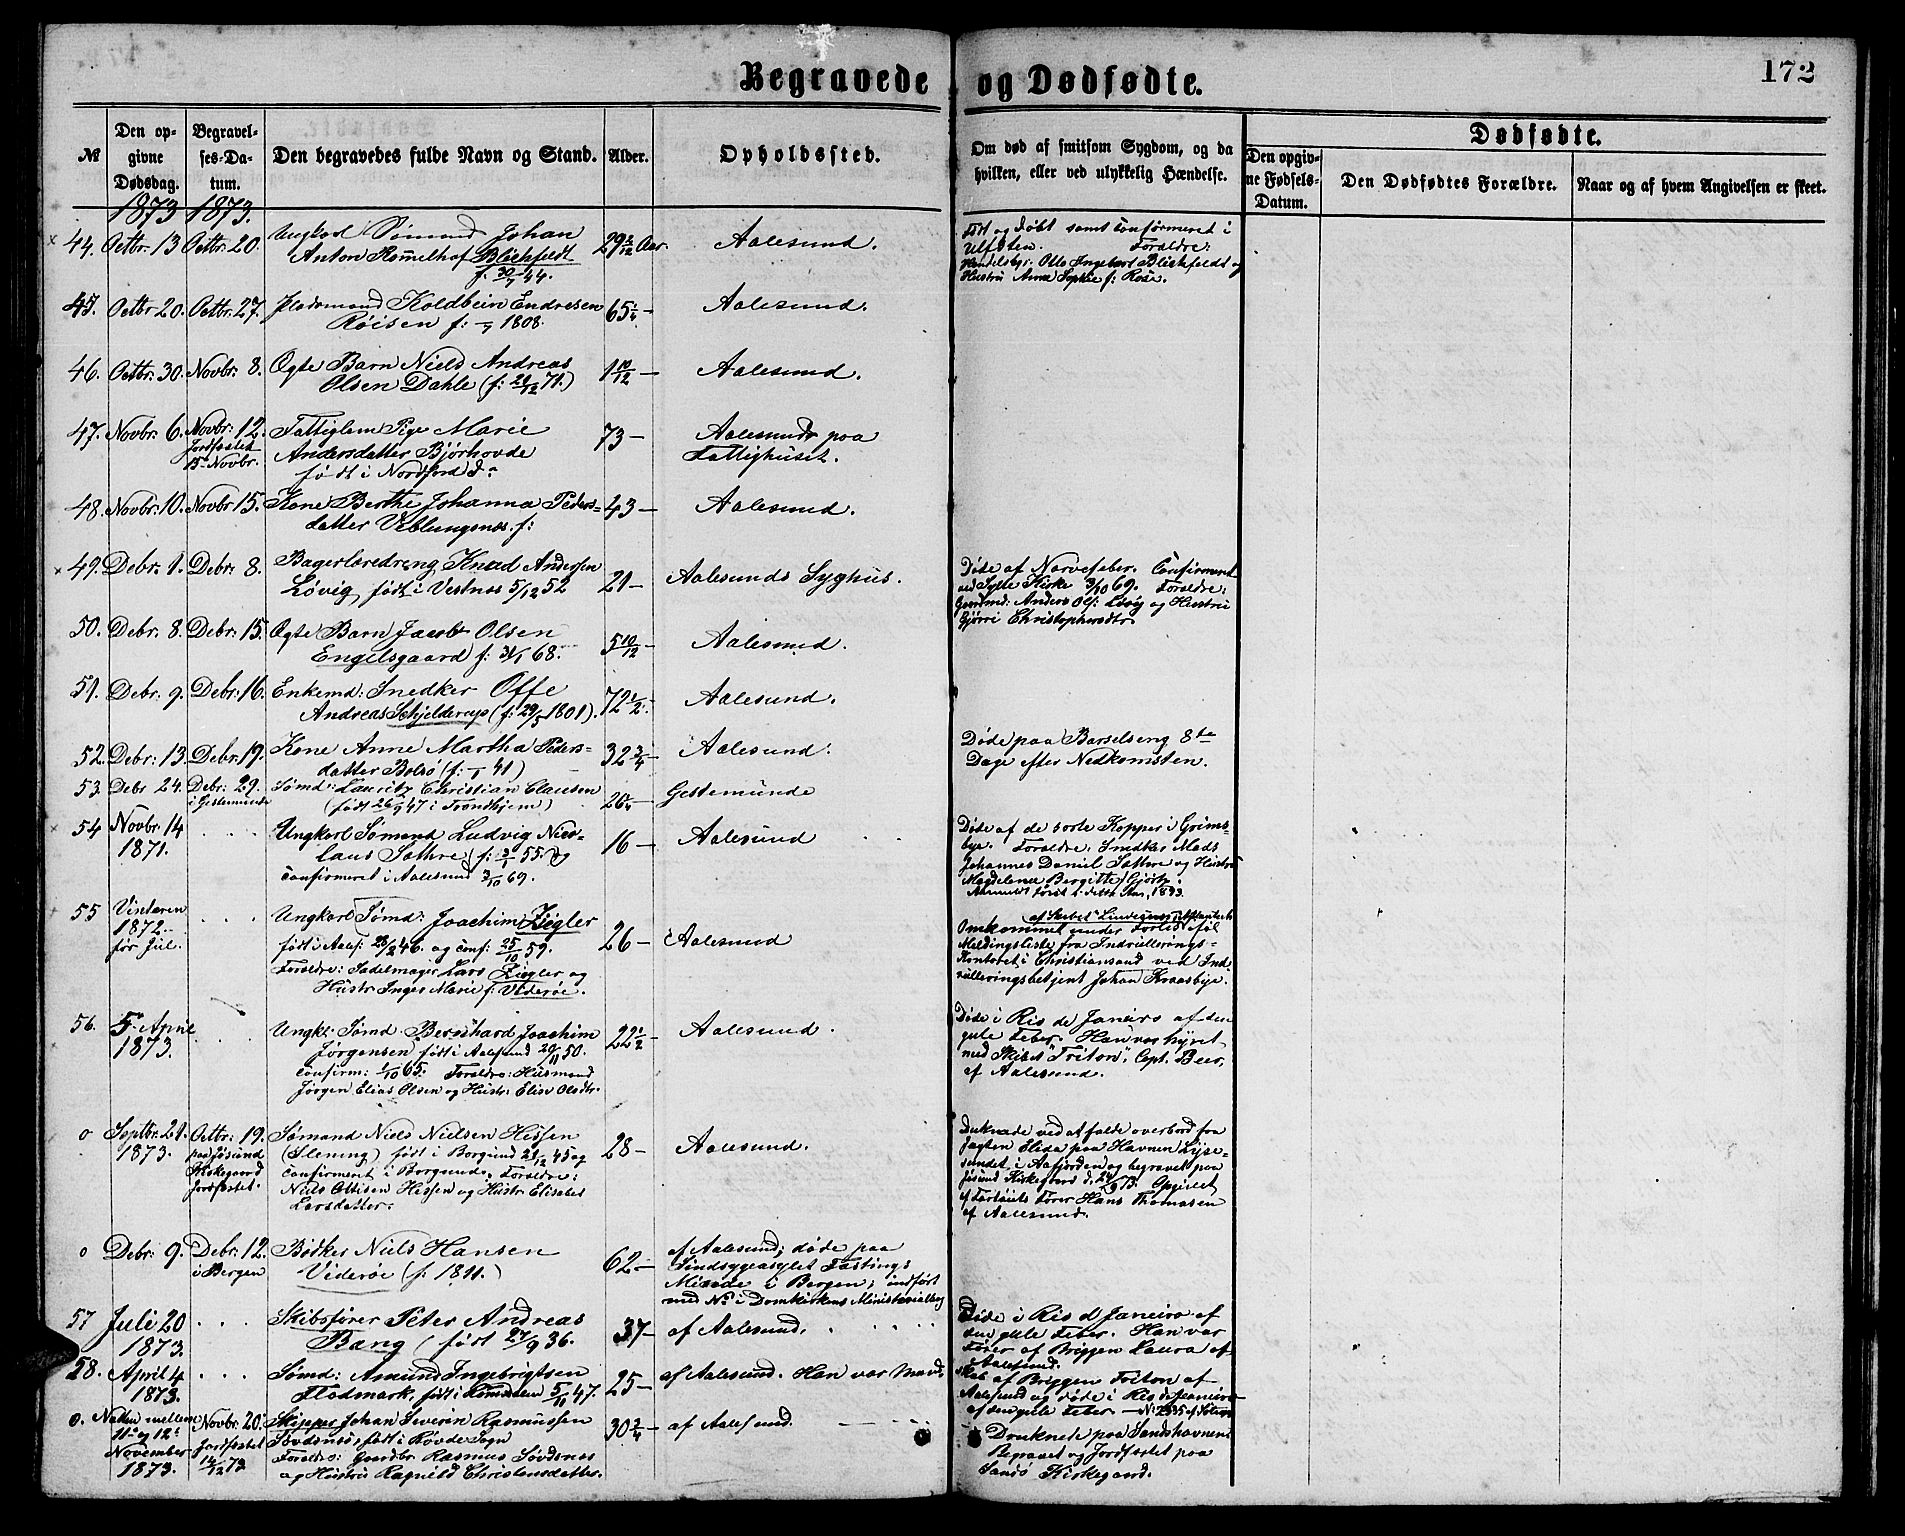 Begravede og Dødfødte.
172
№
Den opgivne Dødsdag.
Begravelses-Datum.
Den begravedes fulde Navn og Stand.
Alder.
Opholdssted.
Om død af smitsom Sygdom, og da hvilken, eller ved ulykkelig Hændelse.
Dødfødte.
Den opgivne Fødsels-Datum.
Den Dødfødtes Forældre.
Naar og af hvem Angivelsen er skeet.
1873 1873.
44. Octbr. 13 Octbr. 20. Ungkarl Sømand Johan
Anton Rømelhof Blichfeldt
f. 30/7 44.
29 3/12 Aar. Aalesund.
Født og døbt samt confirmeret i
Ulfsten. Forældre:
Handelsbgr. Otto Ingebart Blichfeldt og
Hustru Anna Sophie f: Rose.
45. Octbr 20. Octbr. 27. Pladsmand Koldbein Endresen
Røisen f: 1808.
65 1/4 — Aalesund.
46. Octbr. 30. Novbr: 8. Ægte Barn Niels Andreas
Olsen Dahle (f: 21/12 71.)
1 10/12 — Aalesund.
47. Novbr: 6. Novbr: 12.
Jordfæstet
15. Novbr.
Fattiglem Pige Marie
Andersdatter Bjørhovde
født i Nordfjord
73 — Aalesund paa
Fattighuset.
48. Novbr: 10. Novbr 15. Kone Berthe Johanna Peders-
datter Veblungsnes. f:
43 — Aalesund.
49. Debr. 1. Debr: 8. Bagerlæredreng Knud Andersen
Løvig, født i Vestnes 5/12 52
21 — Aalesunds Syghus.
Døde af Nervefeber. Confirmeret
ved Sylte Kirke 3/10 69. Forældre:
Gaardmd: Anders Ols: Løvig og Hustru
Gjøri Christophersdtr.
50. Debr. 8. Debr: 15. Ægte Barn Jacob Olsen
Engelsgaard f: 31/1 68.
5 10/12 — Aalesund.
51. Debr. 9. Debr: 16. Enkemd: Snedker Offe
Andreas Schjelderup (f: 29/5 1801).
72 1/2 — Aalesund.
52. Debr: 13. Debr: 19. Kone Anne Martha Peders-
datter Bolsø (f: 41)
32 3/4 — Aalesund.
Døde paa Barselseng 8te
Dage efter Nedkomsten.
53. Debr 24. Debr: 29.
i Gestemünde
Sømd: Lauritz Christian Clausen
(født 26/9 47 i Trondhjem)
26 1/4 — Gestemünde
54 Novbr. 14
1871. Ungkarl Sømand Ludvig Nico-
laus Sæthre (f: 3/1 55. og
confirmeret i Aalesund 3/10 69.
16 — Aalesund
Døde af de sorte Kopper i Grims-
bye. Forældre. Snedker Mads
Johannes Daniel Sæthre og Hustru
Magdelena Bergitte Gjørtz.
Anmeldt først i dette Aar, 1873.
55 Vinteren
1872
før Jul. Ungkarl Sømd: Joachim Ziegler
født i Aalesf: 28/2 46. og conf: 25/10 59.
Forældre: Sadelmager Lars Ziegler og
Hustr Inger Marie f: Viderøe.
26 — Aalesund
Omkommet under Forlis iføl
Meldingsliste fra Indrulerings-
Kontoret i Christiansand ved Ind-
rulleringsbetjent Johan Kraasbye.
56. 5. April
1873. Ungk. Sømd. Bernhard Joachim
Jørgensen, født i Aalesund 20/11 50.
confirm: 1/10 65. Forældre: Husmand
Jørgen Elias Olsen og Hustr: Elise Olsdtr.
22 1/2 — Aalesund.
Døde i Rio de Janeiro af den
gule Feber. Han var hyret
med Skibet "Triton", Capt. Beer,
af Aalesund.
o Septbr. 21.
1873. Octbr: 19.
paa Jøsund
Kirkegaard
Jordfæstet.
Sømand Niels Nielsen Hessen
(Slening) født i Borgund 21/12 45 og
confirmeret i Borgund. Forældre:
Niels Ottisen Hessen og Hustr Elisabet
Larsdatter.
28 — Aalesund.
Druknede ved at falde overbord fra
Jagten Elida paa Havnen Lyse-
sundet i Aafjorden og begravet paa
Jøsund Kirkegaard d. 24/9 73. Opgivet
af Fartøiets Fører Hans Thomasen
af Aalesund.
o Debr: 9. Debr: 12.
i Bergen
Bødker Niels Hansen
Viderøe (f: 1811.)
62 — af Aalesund; døde paa
Sindsygeasylet Fastings
Minde i Bergen; indført
med No i Domkirkens Ministerialbog
57 Juli 20
1873. Skibsfører Peter Andreas
Bang (født 27/9 36.
37 — af Aalesund.
Døde i Rio d Janeiro af
den gule Feber. Han var
Fører af Briggen Laura af
Aalesund.
58. April 4
1873. Sømd: Amund Ingebrigtsen
Flodmark, født i Romsdalen 5/11 47.
25 — af Aalesund. Han var Mand-
skab af Briggen Triton af
Aalesund og døde i Rio de Janeiro
af den gule Feber.
o. Natten mellem
11te og 12te
November
1873. Novbr. 20.
Jordfæstet
14/12 73
Skipper Johan Severin Rasmussen
Søvdsnes, født i Røvde Sogn
Forældre: Gaardbr. Rasmus Søvdsnes
og Hustru Ragnild Christensdatter.
30 3/4 — af Aalesund.
Druknede paa Sandshavnen
Begravet og Jordfæstet paa
Sandø Kirkegaard.